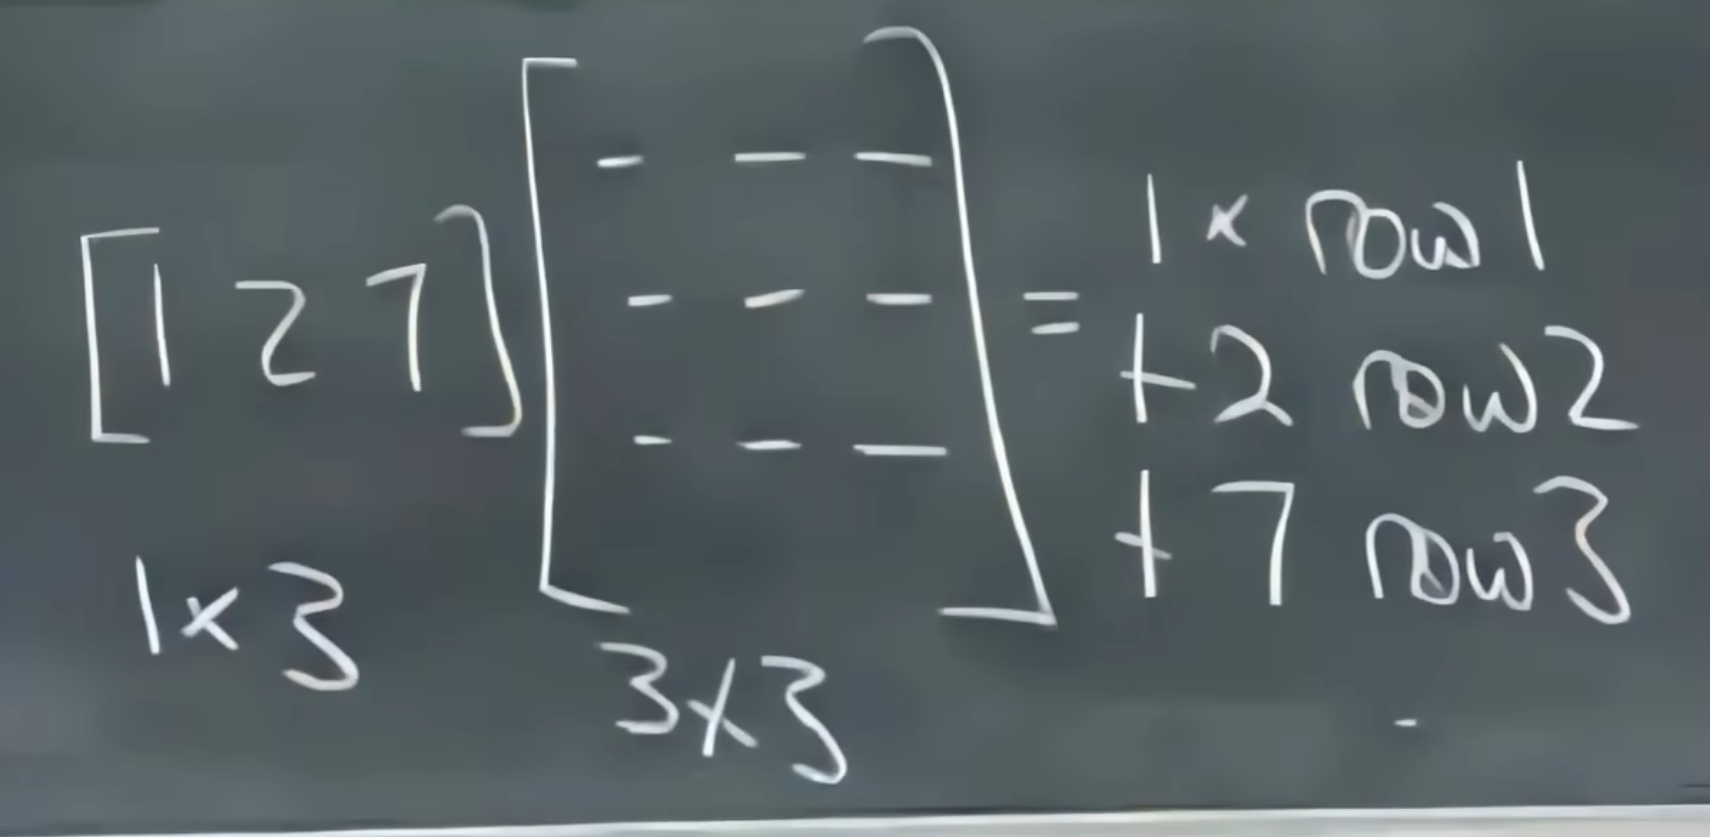 [1 2 7] [- - - - - - - - -] = 1 × row 1
+ 2 row 2
+ 7 row 3
1×3 3×3